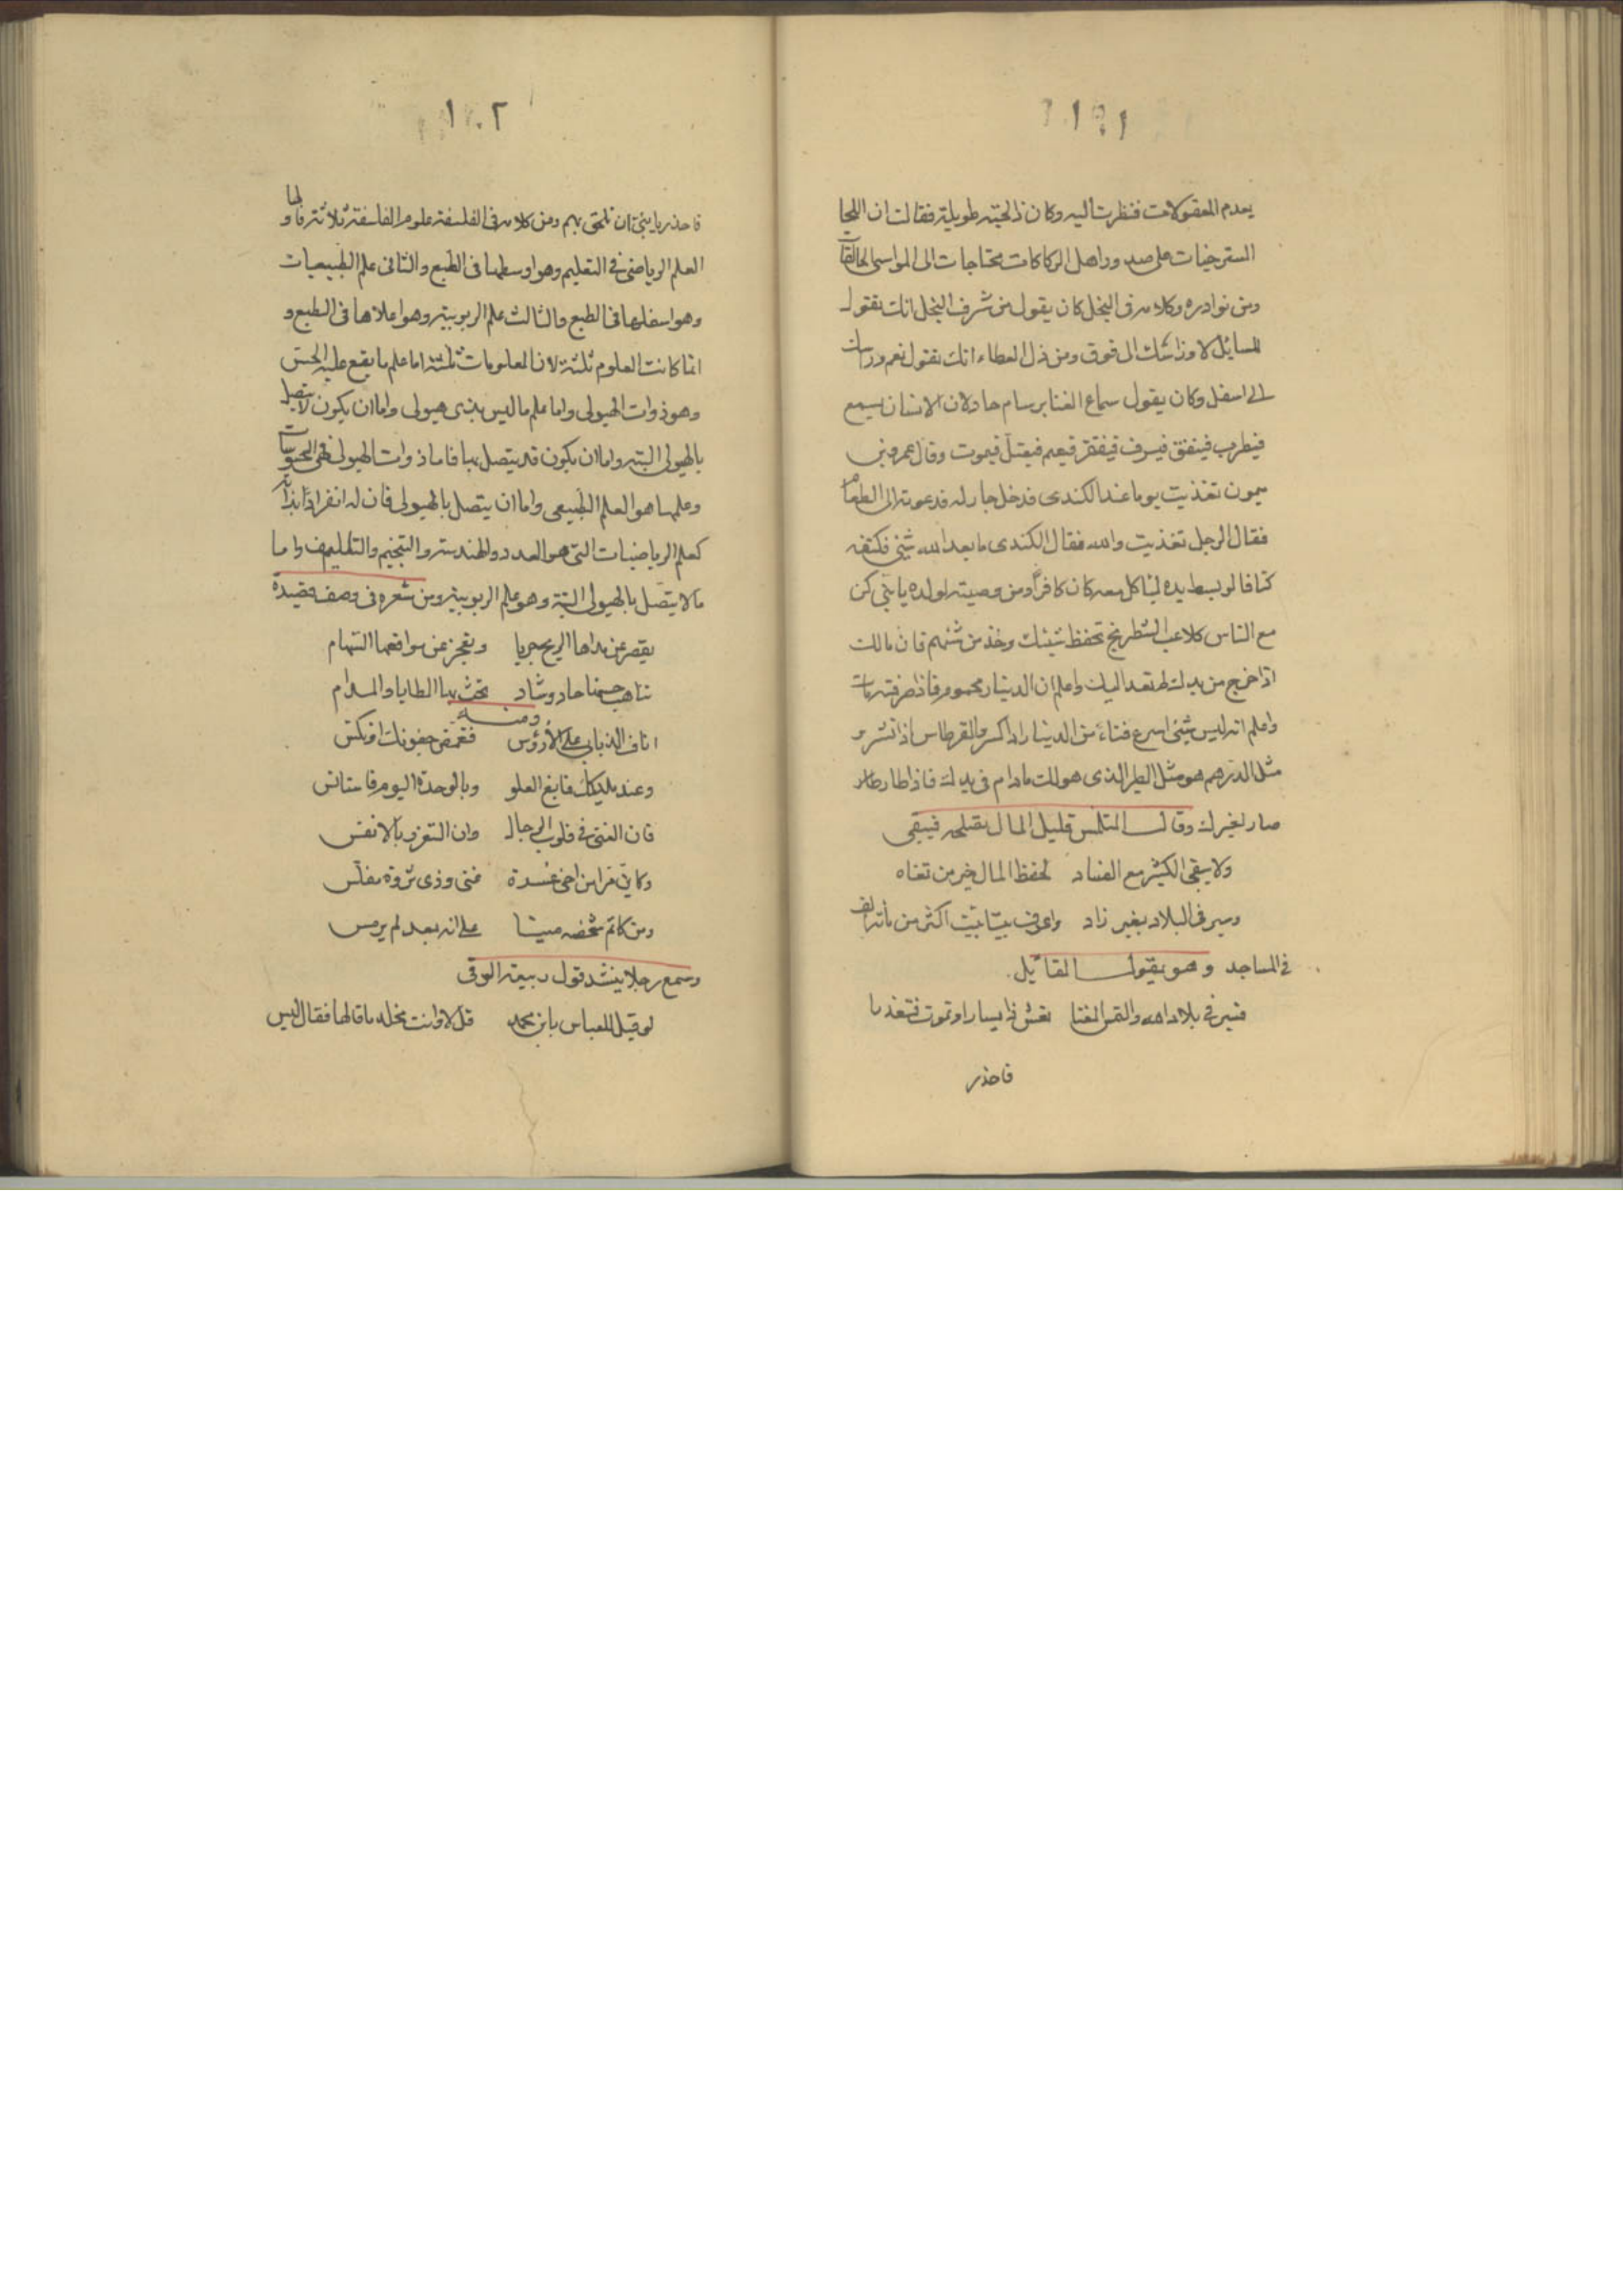 ١٠١
يعدم المعقولات فنظرت اليه وكان ذا لحية طويلة فقالت ان اللحا
المسترخيات على صدور اهل الركاكات محتاجات الى المواسى الحالقات
ومن نوادره وكلامه فى البخل كان يقول من شرف البخل انك تقول
للسايل لا وراسك الى فوق ومن ذل العطاء انك تقول نعم وراسك
الى اسفل وكان يقول سماع الغنا برسام حاد لان الانسان يسمع
فيطرب فينفق فيسرف فيفتقر فيغتم فيعتل فيموت وقال عمرو بن
ميمون تغذيت يوما عند الكندى فدخل جار له فدعوته الى الطعام
فقال الرجل تغذيت والله فقال الكندى ما بعد الله شئ فكتفه
كتافا لو بسط يده لياكل معه كان كافرا ومن وصيته لولده يا بنى كن
مع الناس كلاعب الشطرنج تحفظ شيئك وخذ من شيئهم فان مالك
اذا خرج من يدك لم يعد اليك واعلم ان الدينار محموم فاذا صرفته مات
واعلم انه ليس شئ اسرع فناء من الدينار اذا كسر والقرطاس اذا نشر و
مثل الدرهم هو مثل الطير الذى هو لك ما دام فى يدك فاذا طار
صار لغيرك وقال المتلمس قليل المال تصلحه فيبقى
ولا يبقى الكثير مع الفساد لحفظ المال خير من
وسير فى البلاد بغير زاد واعرف بيتا بيت اكثر من مائة الف
فى المساجد وهو يقول القائل
فسر فى بلاد الله والتمس الغنا تعش ذا يسار او تموت فتعذرا
فاحذر
١٠٢
فاحذر يا بنى ان تلحق بهم ومن كلامه فى الفلسفة علوم الفلسفة ثلاثة فاولها
العلم الرياضى فى التعليم وهو اوسطها فى الطبع والثانى علم الطبيعيات
وهو اسفلها فى الطبع والثالث علم الربوبية وهو اعلاها فى الطبع و
انما كانت العلوم ثلثة لان المعلومات ثلثة اما علم ما يقع عليه الحس
وهو ذوات الهيولى واما علم ما ليس بذى هيولى واما ان يكون لا يتصل
بالهيولى البتة واما ان يكون قد يتصل بها فاما ذوات الهيولى فهى المحسوسات
وعلمها هو العلم الطبيعى واما ان يتصل بالهيولى فان له انفرادا بذاته
كعلم الرياضيات التى هو العدد والهندسة والتنجيم والتاليف واما
ما لا يتصل بالهيولى البتة وهو علم الربوبية ومن شعره فى وصف قصيدة
يقصر عن مداها الريح جريا وتعجز عن مواقعها السهام
تناهب حسنها حاد وشاد تحث بها المطايا والمدام
ومنه
اناف الذنابى على الارؤس فغمض جفونك او نكس
وعند مليكك فابغ العلو وبالوحدة اليوم فاستانس
فان الغنى فى قلوب الرجال وان التعزز بالانفس
وكاين ترا من اخى عسرة غنى وذى ثروة مفلس
ومن كاتم شخصه ميتا على انه بعد لم يرمس
وسمع رجلا ينشد قول ربيعة الرقى
لو قيل للعباس يا ابن محمد قل لا وانت مخلد ما قالها فقال ليس